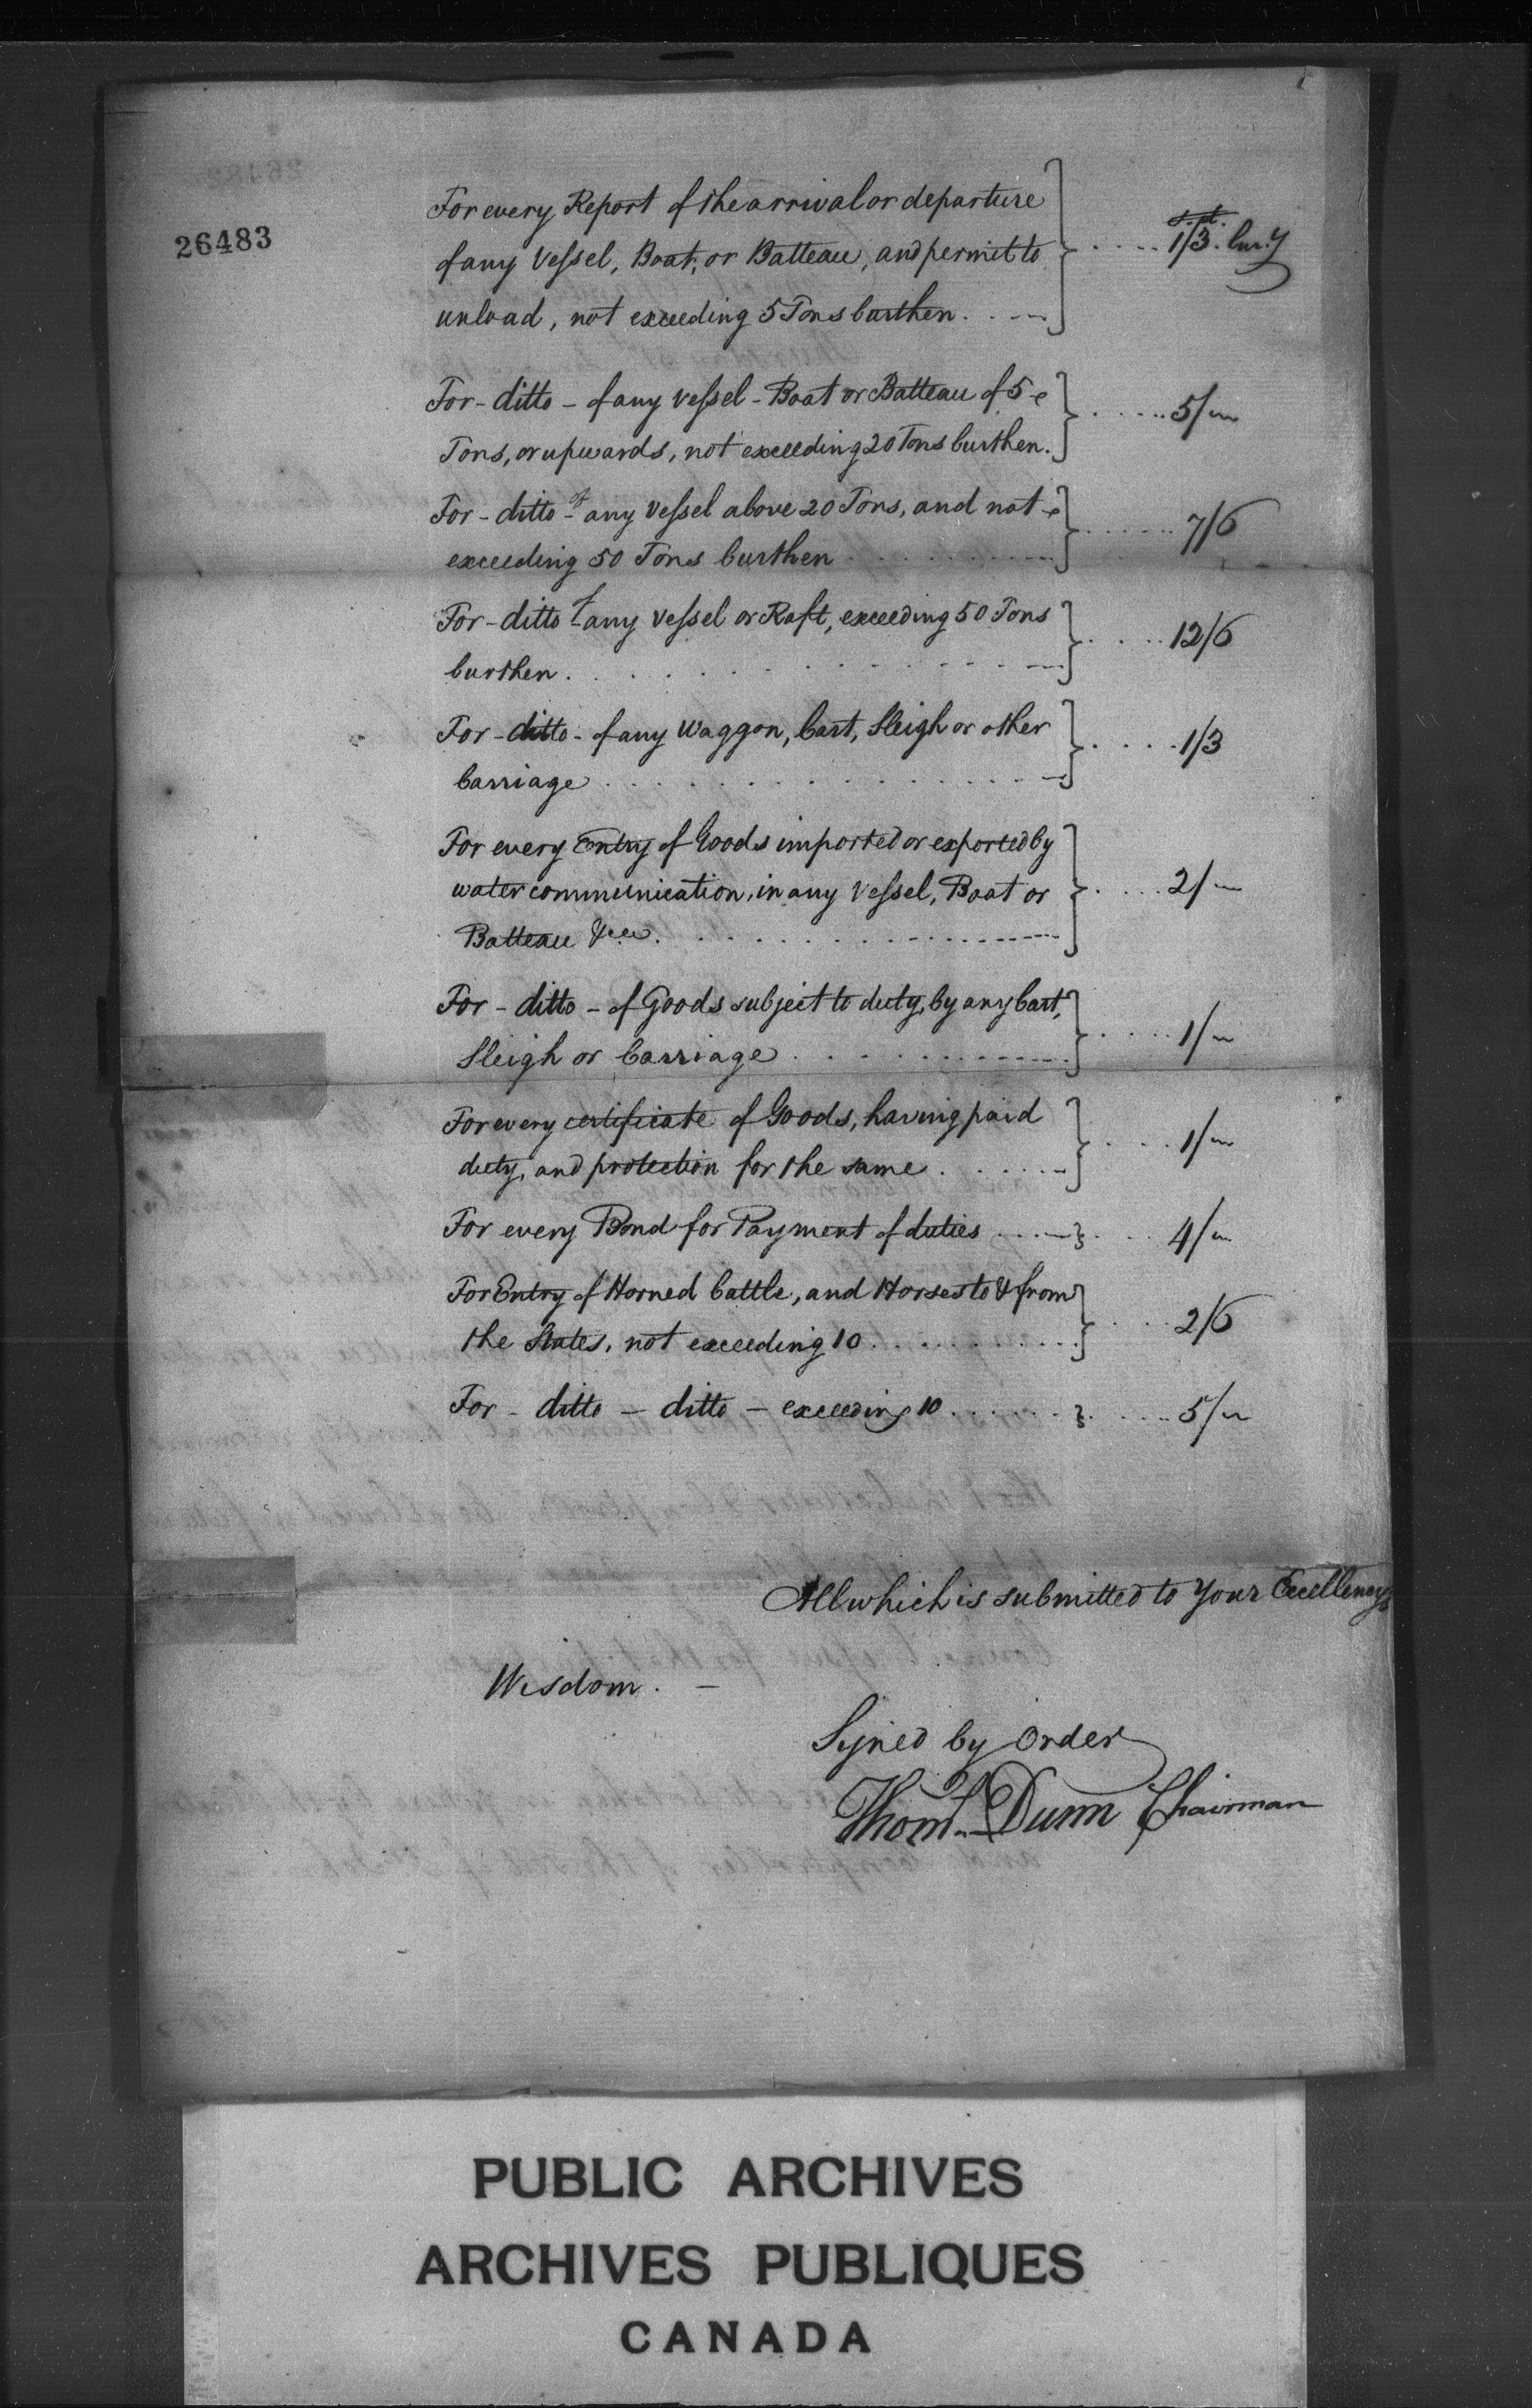 26483
For every Report of the arrival or departure
of any Vessel, Boat, or Batteau, and permit to
unload, not exceeding 5 Tons burthen . . } . . . . 1/3. Cur.y
For - ditto - of any vessel - Boat or Batteau of 5
Tons, or upwards, not exceeding 20 Tons burthen. } . . . . 5/"
For - ditto - of any Vessel above 20 Tons, and not
exceeding 50 Tons burthen . . . . } . . . . 7/6
For - ditto - of any Vessel or Raft, exceeding 50 Tons
burthen . . . . } . . . . 12/6
For - ditto - of any Waggon, Cart, Sleigh or other
Carriage . . . . } . . . . 1/3
For every Entry of Goods imported or exported by
water communication, in any Vessel, Boat or
Batteau &ca. . . . . } . . . . 2/"
For - ditto - of Goods subject to duty, by any Cart,
Sleigh or Carriage . . . . } . . . . 1/"
For every certificate of Goods, having paid
duty, and protection for the same . . . . } . . . . 1/"
For every Bond for Payment of duties . . . . } . . . . 4/"
For Entry of Horned Cattle, and Horses to & from
the States, not exceeding 10 . . . . } . . . . 2/6
For - ditto - ditto - exceeding 10 . . . . } . . . . 5/"
All which is submitted to Your Excellency's
Wisdom. -
Signed by Order
Thom.s Dunn Chairman
PUBLIC ARCHIVES
ARCHIVES PUBLIQUES
CANADA